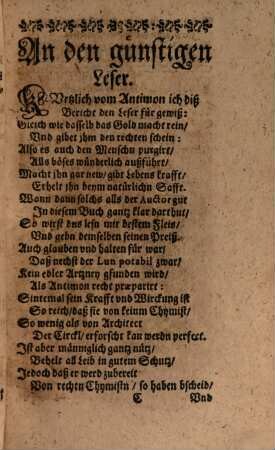 An den günstigen
Leser.
KVrtzlich vom Antimon ich diß
Bericht den Leser für gewiß:
Gleich wie dasselb das Gold macht rein/
Vnd gibet jhm den rechten schein:
Also es auch den Menschn purgirt/
Alls böses wünderlich außführt/
Macht jhn gar new/ gibt Lebens krafft/
Erhelt jhn beym natürlichn Safft.
Wann dann solchs alls der Auctor gut
In diesem Buch gantz klar darthut/
So wirst dus lesn mit bestem Fleis/
Vnd gebn demselben seinen Preiß.
Auch glauben vnd halten für war/
Daß nechst der Lun potabil zwar/
Kein edler Artzney gfunden wird/
Als Antimon recht præpariert:
Sintemal sein Krafft vnd Wirckung ist
So reich/ daß sie von keinm Chymist/
So wenig als von Architect
Der Circkl/ erforscht kan werdn perfect.
Ist aber männiglich gantz nütz/
Behelt als Leib in gutem Schutz/
Jedoch daß er werd zubereit
Von rechtn Chymistn/ so haben bscheid/
C Vnd